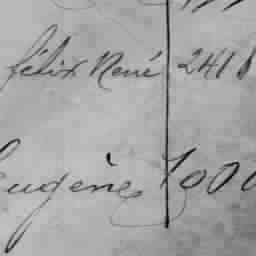 félix René 2418
Eugène 1900